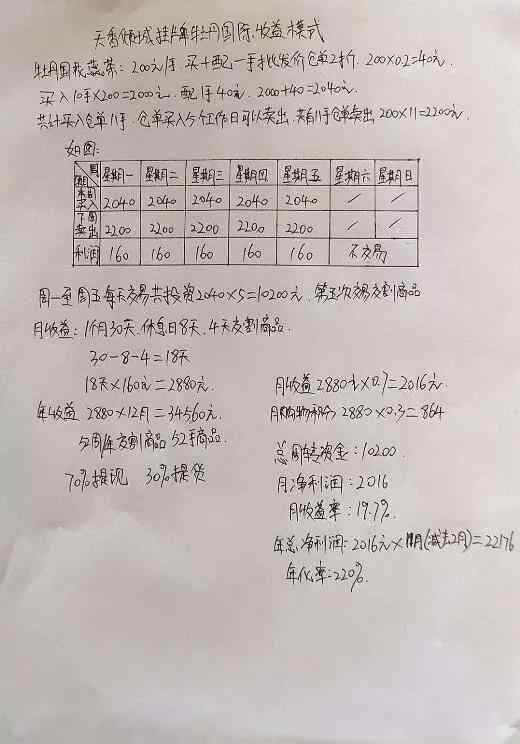 天香倾城挂牌牡丹国际.收益模式
牡丹国花蕊茶：200元/手 买十配一手批发价仓单2折. 200×0.2=40元.
买入10手×200=2000元. 配1手40元. 2000+40=2040元.
共计买入仓单11手. 仓单买入5个工作日可以卖出. 共有11手仓单卖出 200×11=2200元.
如图：
星期一 星期二 星期三 星期四 星期五 星期六 星期日
本周买入 2040 2040 2040 2040 2040 / /
下周卖出 2200 2200 2200 2200 2200 / /
利润 160 160 160 160 160 不交易
周一至周五每天交易共投资2040×5=10200元. 第五次交易交割商品
月收益：1个月30天. 休息日8天. 4天交割商品.
30-8-4=18天
18天×160元=2880元.
年收益 2880×12月=34560元.
年交割商品 52手商品.
70%提现 30%提货
月收益2880元×0.7=2016元.
月购物积分 2880×0.3=864
总周转资金：10200.
月净利润：2016
月收益率：19.7%.
年总净利润：2016元×11月(减去2月)=22176
年化率：220%.